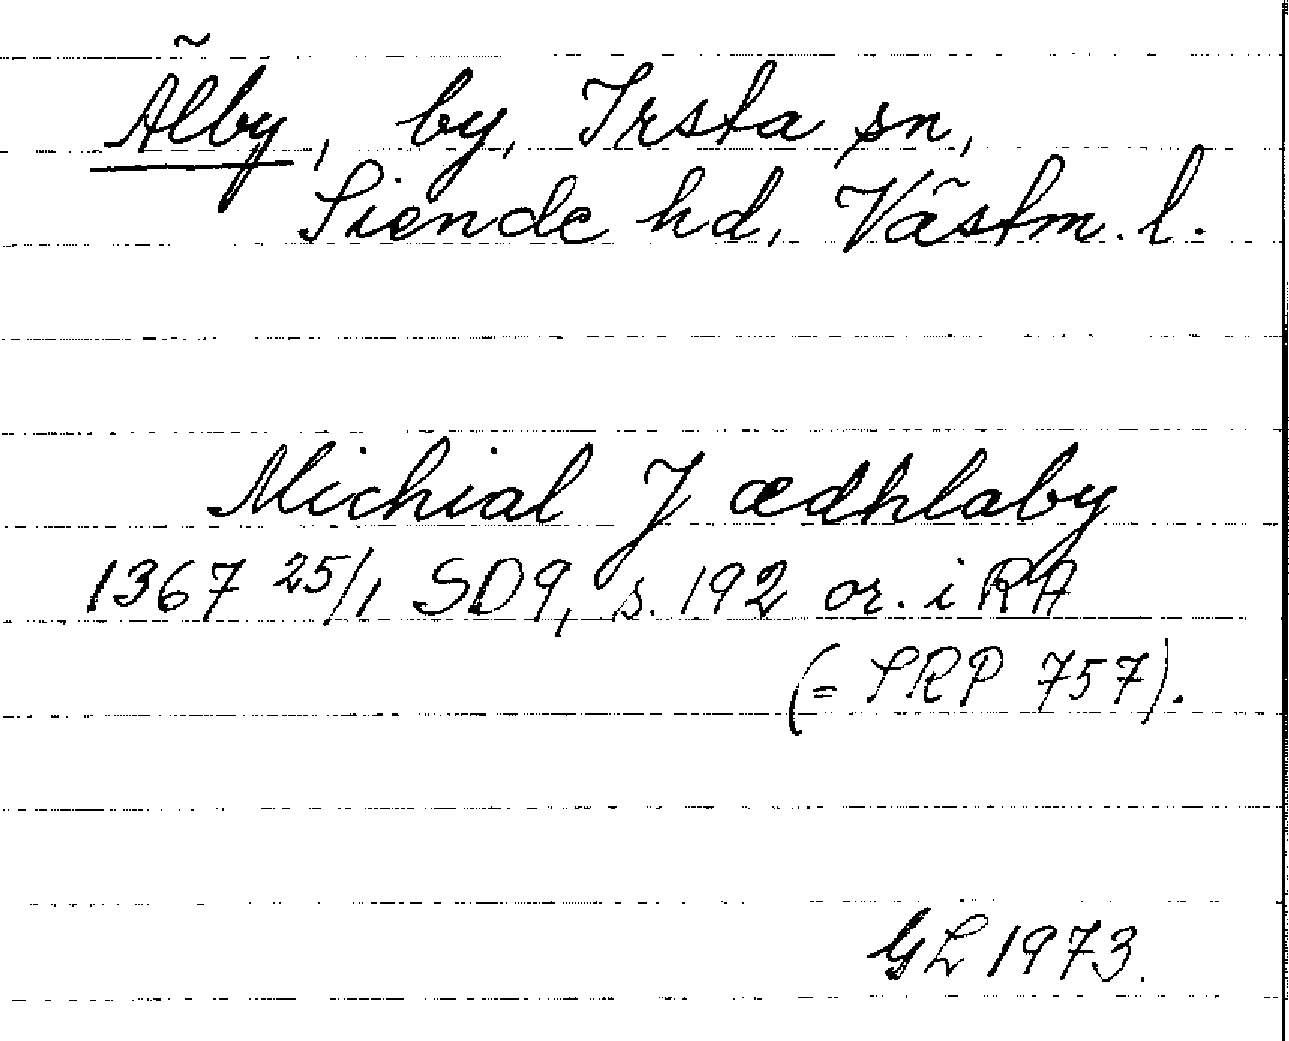 Älby, by, Irsta sn,
Siende hd, Västm. l.
Michial J ædhlaby
1367 25/1 SD9, s. 192 or. i RA
(= SRP 757).
GL 1973.